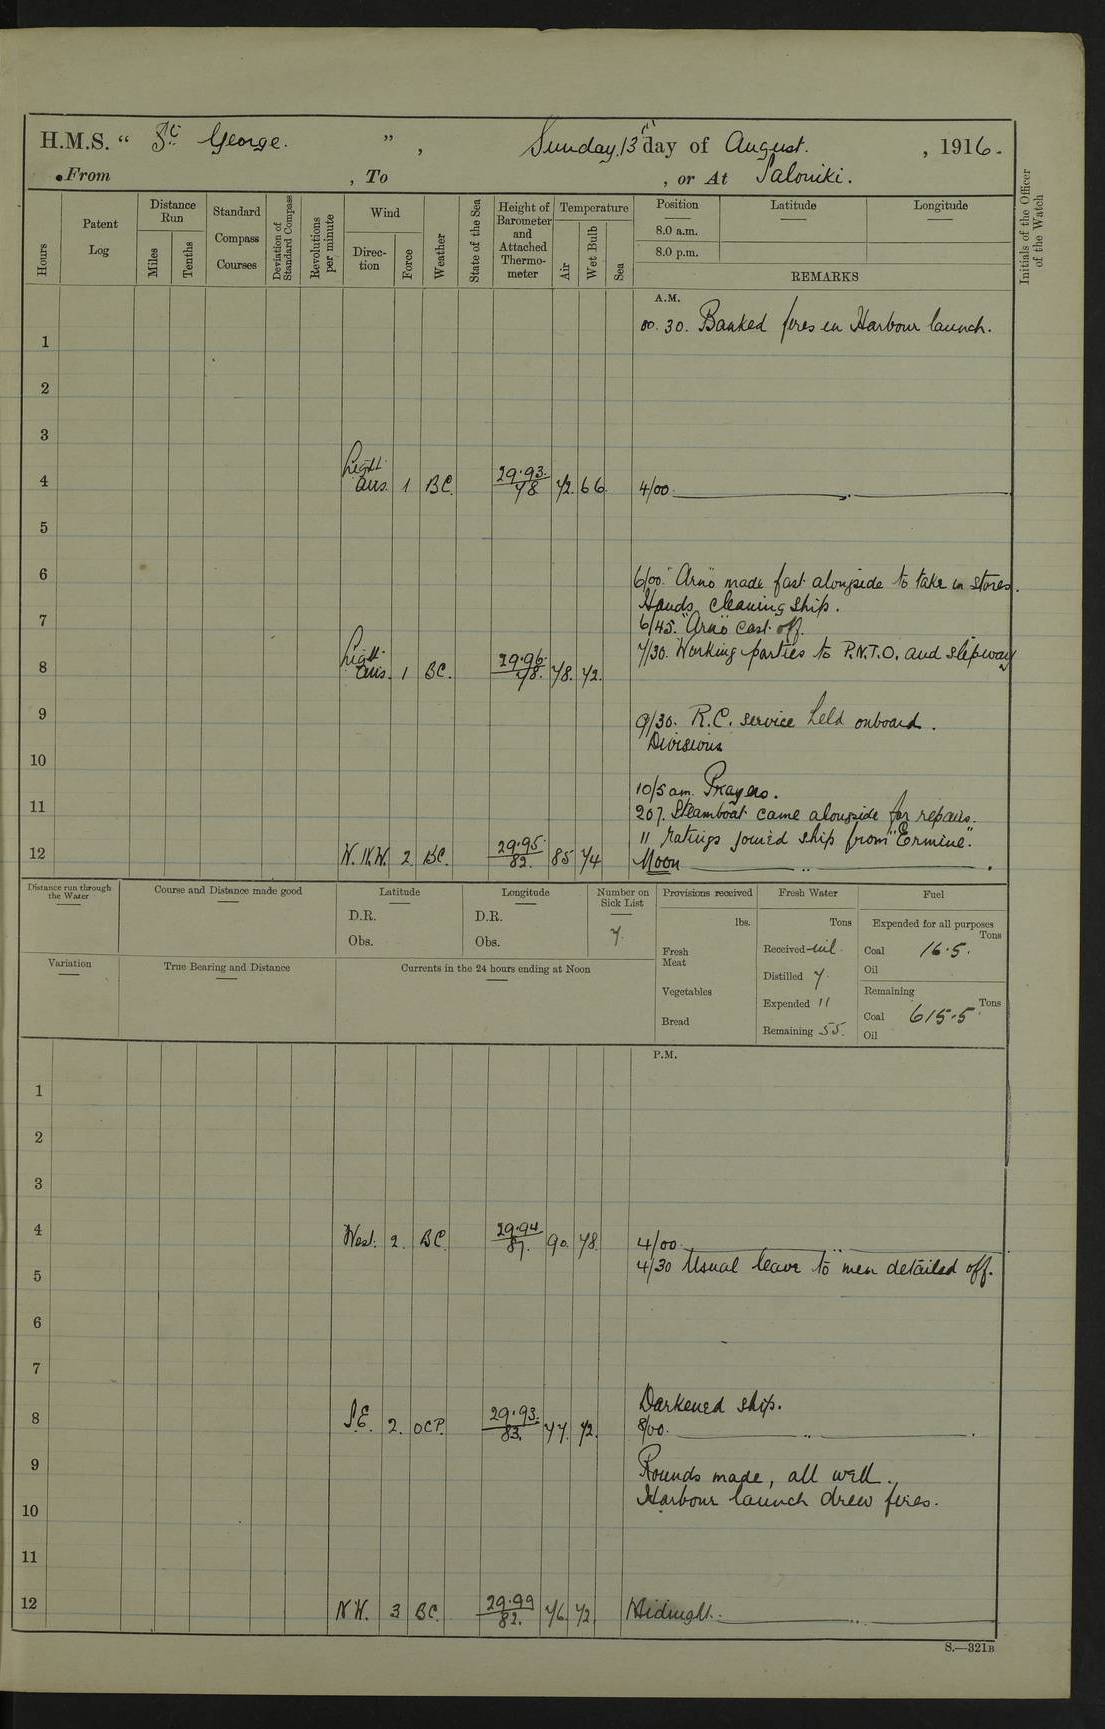 H.M.S. “ St. George. ” , Sunday, 13th day of August. , 1916.
From , To , or At Saloniki.
Hours
Patent Log
Distance Run
Miles
Tenths
Standard Compass Courses
Deviation of Standard Compass
Revolutions per minute
Wind
Direction
Force
Weather
State of the Sea
Height of Barometer and Attached Thermometer
Temperature
Air
Wet Bulb
Sea
Position
8.0 a.m.
8.0 p.m.
Latitude
Longitude
REMARKS
Initials of the Officer of the Watch
A.M.
00.30. Banked fires in Harbour launch.
1
2
3
4 Light airs. 1 BC. 29.93. 78 72. 66. 4/00.
5
6 6/00. "Arno" made fast alongside to take in stores.
Hands cleaning ship.
7 6/45. "Arno" cast off.
7/30. Working parties to P.N.T.O. and slipway
8 Light airs. 1 BC. 29.96. 78. 78. 72.
9 9/30. R.C. service held onboard.
Divisions
10
10/5 am. Prayers.
11 207. Steamboat came alongside for repairs.
11 ratings joined ship from "Ermine".
12 N.N.W. 2 BC. 29.95. 82. 85 74 Noon
Distance run through the Water
Course and Distance made good
Latitude
D.R.
Obs.
Longitude
D.R.
Obs.
Number on Sick List
7.
Provisions received
lbs.
Fresh Meat
Vegetables
Bread
Fresh Water
Tons
Received nil.
Distilled 7.
Expended 11
Remaining 55.
Fuel
Expended for all purposes
Tons
Coal 16.5.
Oil
Remaining
Tons
Coal 615.5
Oil
Variation
True Bearing and Distance
Currents in the 24 hours ending at Noon
P.M.
1
2
3
4 West. 2. BC 29.94. 87. 90. 78. 4/00.
4/30 Usual leave to men detailed off.
5
6
7
Darkened ship.
8 S.E. 2. OCP. 29.93. 83. 77. 72. 8/00.
9 Rounds made, all well.
Harbour launch drew fires.
10
11
12 NW. 3 BC. 29.99 82. 76. 72. Midnight.
S.—321B